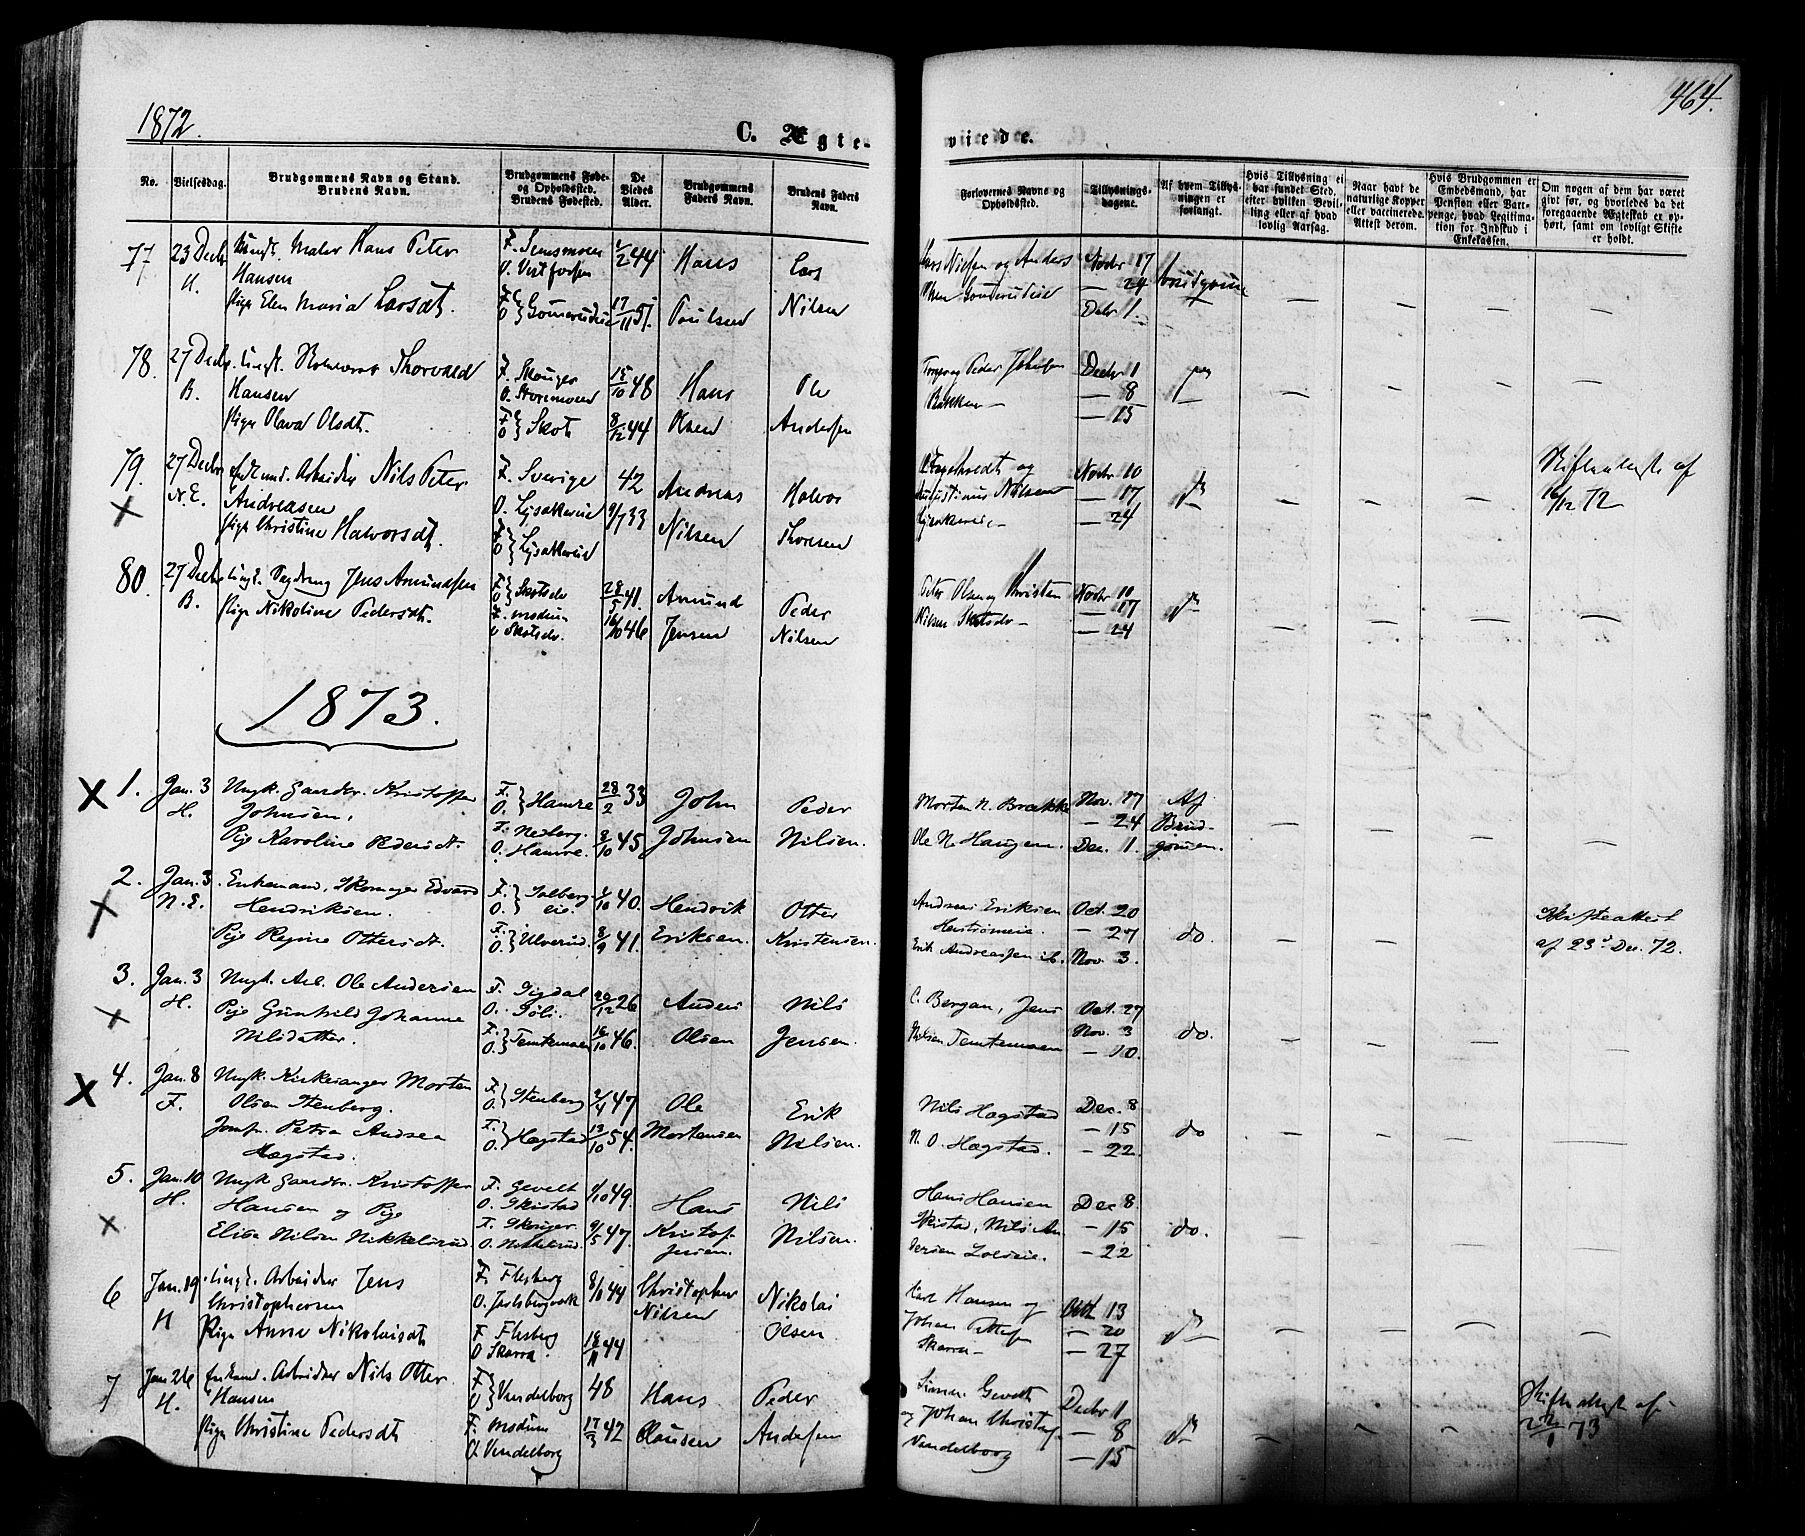 1872.
C. Ægte-
viede.
464.
No.
Vielsesdag.
Brudgommens Navn og Stand.
Brudens Navn.
Brudgommens Føde-
og Opholdssted.
Brudens Fødested.
De
Viedes
Alder.
Brudgommens
Faders Navn.
Brudens Faders
Navn.
Forlovernes Navne og
Opholdssted.
Tillysnings-
dagene.
Af hvem Tillys-
ningen er
forlangt.
Hvis Tillysning ei
har fundet Sted,
efter hvilken Bevil-
ling eller af hvad
lovlig Aarsag.
Naar havt de
naturlige Kopper
eller vaccinerede.
Attest derom.
Hvis Brudgommen er
Embedsmand, har
Pension eller Vart-
penge, hvad Legitima-
tion for Indskud i
Enkekassen.
Om nogen af dem har været
gift før, og hvorledes da det
foregaaende Ægteskab er op-
hørt, samt om lovligt Skifte
er holdt.
77 23 Decbr Ungk. Maler Hans Peter
H. Hansen
Pige Elen Maria Larsdt.
F.
O. Vestfossen
44
17/11 51.
Hans
Poulsen
Lars
Nilsen
Lars Nielsen og Anders
Olsen
Novbr 17
— 24
Decbr 1.
78. 27 Decbr. Ungk. Thorvald
B. Hansen
Pige Olava Olsdt.
F. Skouger
O.
F. O. } Skots
15/10 48
8/12 44
Hans
Olsen
Ole
Andersen
Peder Johnsen
Bakken —
Decbr 1
— 8
— 15
79. 27 Decbr Enkemd. Arbeider Nils Peter
N.E. Andreasen
Pige Christine Halvorsdt.
F. Sverige
O. Lysakereie
F. O. } Lysakereie
42
9/7 33
Andreas
Nilsen
Halvor
Thoresen
og
Augustinus Nilsen
Novbr 10
— 17
— 24
Skifteattest af
16/12 72
80. 27 Decbr Ungk. Jens Amundsen
B. Pige Nikoline Pedersdt.
F. O. } Skotselv
F. Modum
O. Skotselv.
28/5 41.
16/10 46
Amund
Jensen
Peder
Nilsen
Peter Olsen og Christen
Nilsen Skotselv —
Novbr 10
— 17
— 24
1873.
1. Jan. 3 Ungk. Gaardbr. Kristoffer
H. Johnsen,
Pige Karoline Pedersdt.
F. O. } Hamre
F. Nedberg.
O. Hamre.
28/2 33
8/10 45
John
Johnsen
Peder
Nilsen.
Morten N. Brække
Ole N. Haugen.
Nov. 17
— 24
Dec. 1.
Af
Brud-
gomen.
2. Jan. 3. Enkemand, Skomager Edvard
N.E. Hendriksen.
Pige Regine Ottersdt.
F. O. } Solberg
eie.
F. O. } Ulverud.
1/10 40.
8/9 41.
Hendrik
Eriksen.
Otter
Kristensen.
Andreas Eriksen
Erik Andreassen ib.
Oct. 20
— 27
Nov. 3.
do.
Skifteattest
af 23d Dec. 72.
3. Jan. 3 Ungk. Arb. Ole Andersen
H. Pige Gunhild Johanne
Nilsdatter.
F. Sigdal
O. Søli.
F. O. } Temtemoen
20/12 26
16/10 46.
Anders
Olsen
Nils
Jensen.
C. Bergan, Jens
Nilsen Temtemoen
Oct. 27
Nov. 3
— 10.
do.
4. Jan. 8 Ungk. Kirkesanger Morten
F. Olsen Stenberg.
Jomfr. Petra Andrea
Hægstad.
F. O. } Stenberg
F. O. } Hægstad
2/4 47
13/10 54.
Ole
Mortensen
Erik
Nilsen.
Nils Hægstad
N. O. Hægstad.
Dec. 8
— 15
— 22.
do
5. Jan. 10 Ungk. Gaardbr. Kristoffer
H. Hansen og Pige
Elise Nilsen Nikkelsrud.
F. Gevelt
O. Skistad
F. Skoger
O. Nikkelsrud.
1/10 49.
9/5 47.
Hans
Kristof-
fersen.
Nils
Nilsen.
Hans Hansen
Skistad, Nils An-
dersen Loeseie.
Dec. 8.
— 15
— 22
do.
6 Jan. 19 Ungk. Arbeider Jens
H Christophersen
Pige Anne Nikolaisdt
F. Flesberg
O. Jarlsbergværk
F Flesberg
O Skarra.
8/10 44
18/11 44
Christopher
Nilsen
Nikolai
Olsen
Karl Hansen og
Johan Pettersen
Skarra —
Octb 13
— 20
— 27
7 Jan 26 Enkemd. Arbeider Nils Otter
H. Hansen
Pige Christine Pedersdt
F. O. } Vendelborg
F. Modum
O. Vendelborg
48
17/3 42
Hans
Clausen
Peder
Andersen
Simen Gevelt
og Johan Christophersen
Vendelborg
Decbr 1
— 8
— 15
Skifteattest af
22/1 73